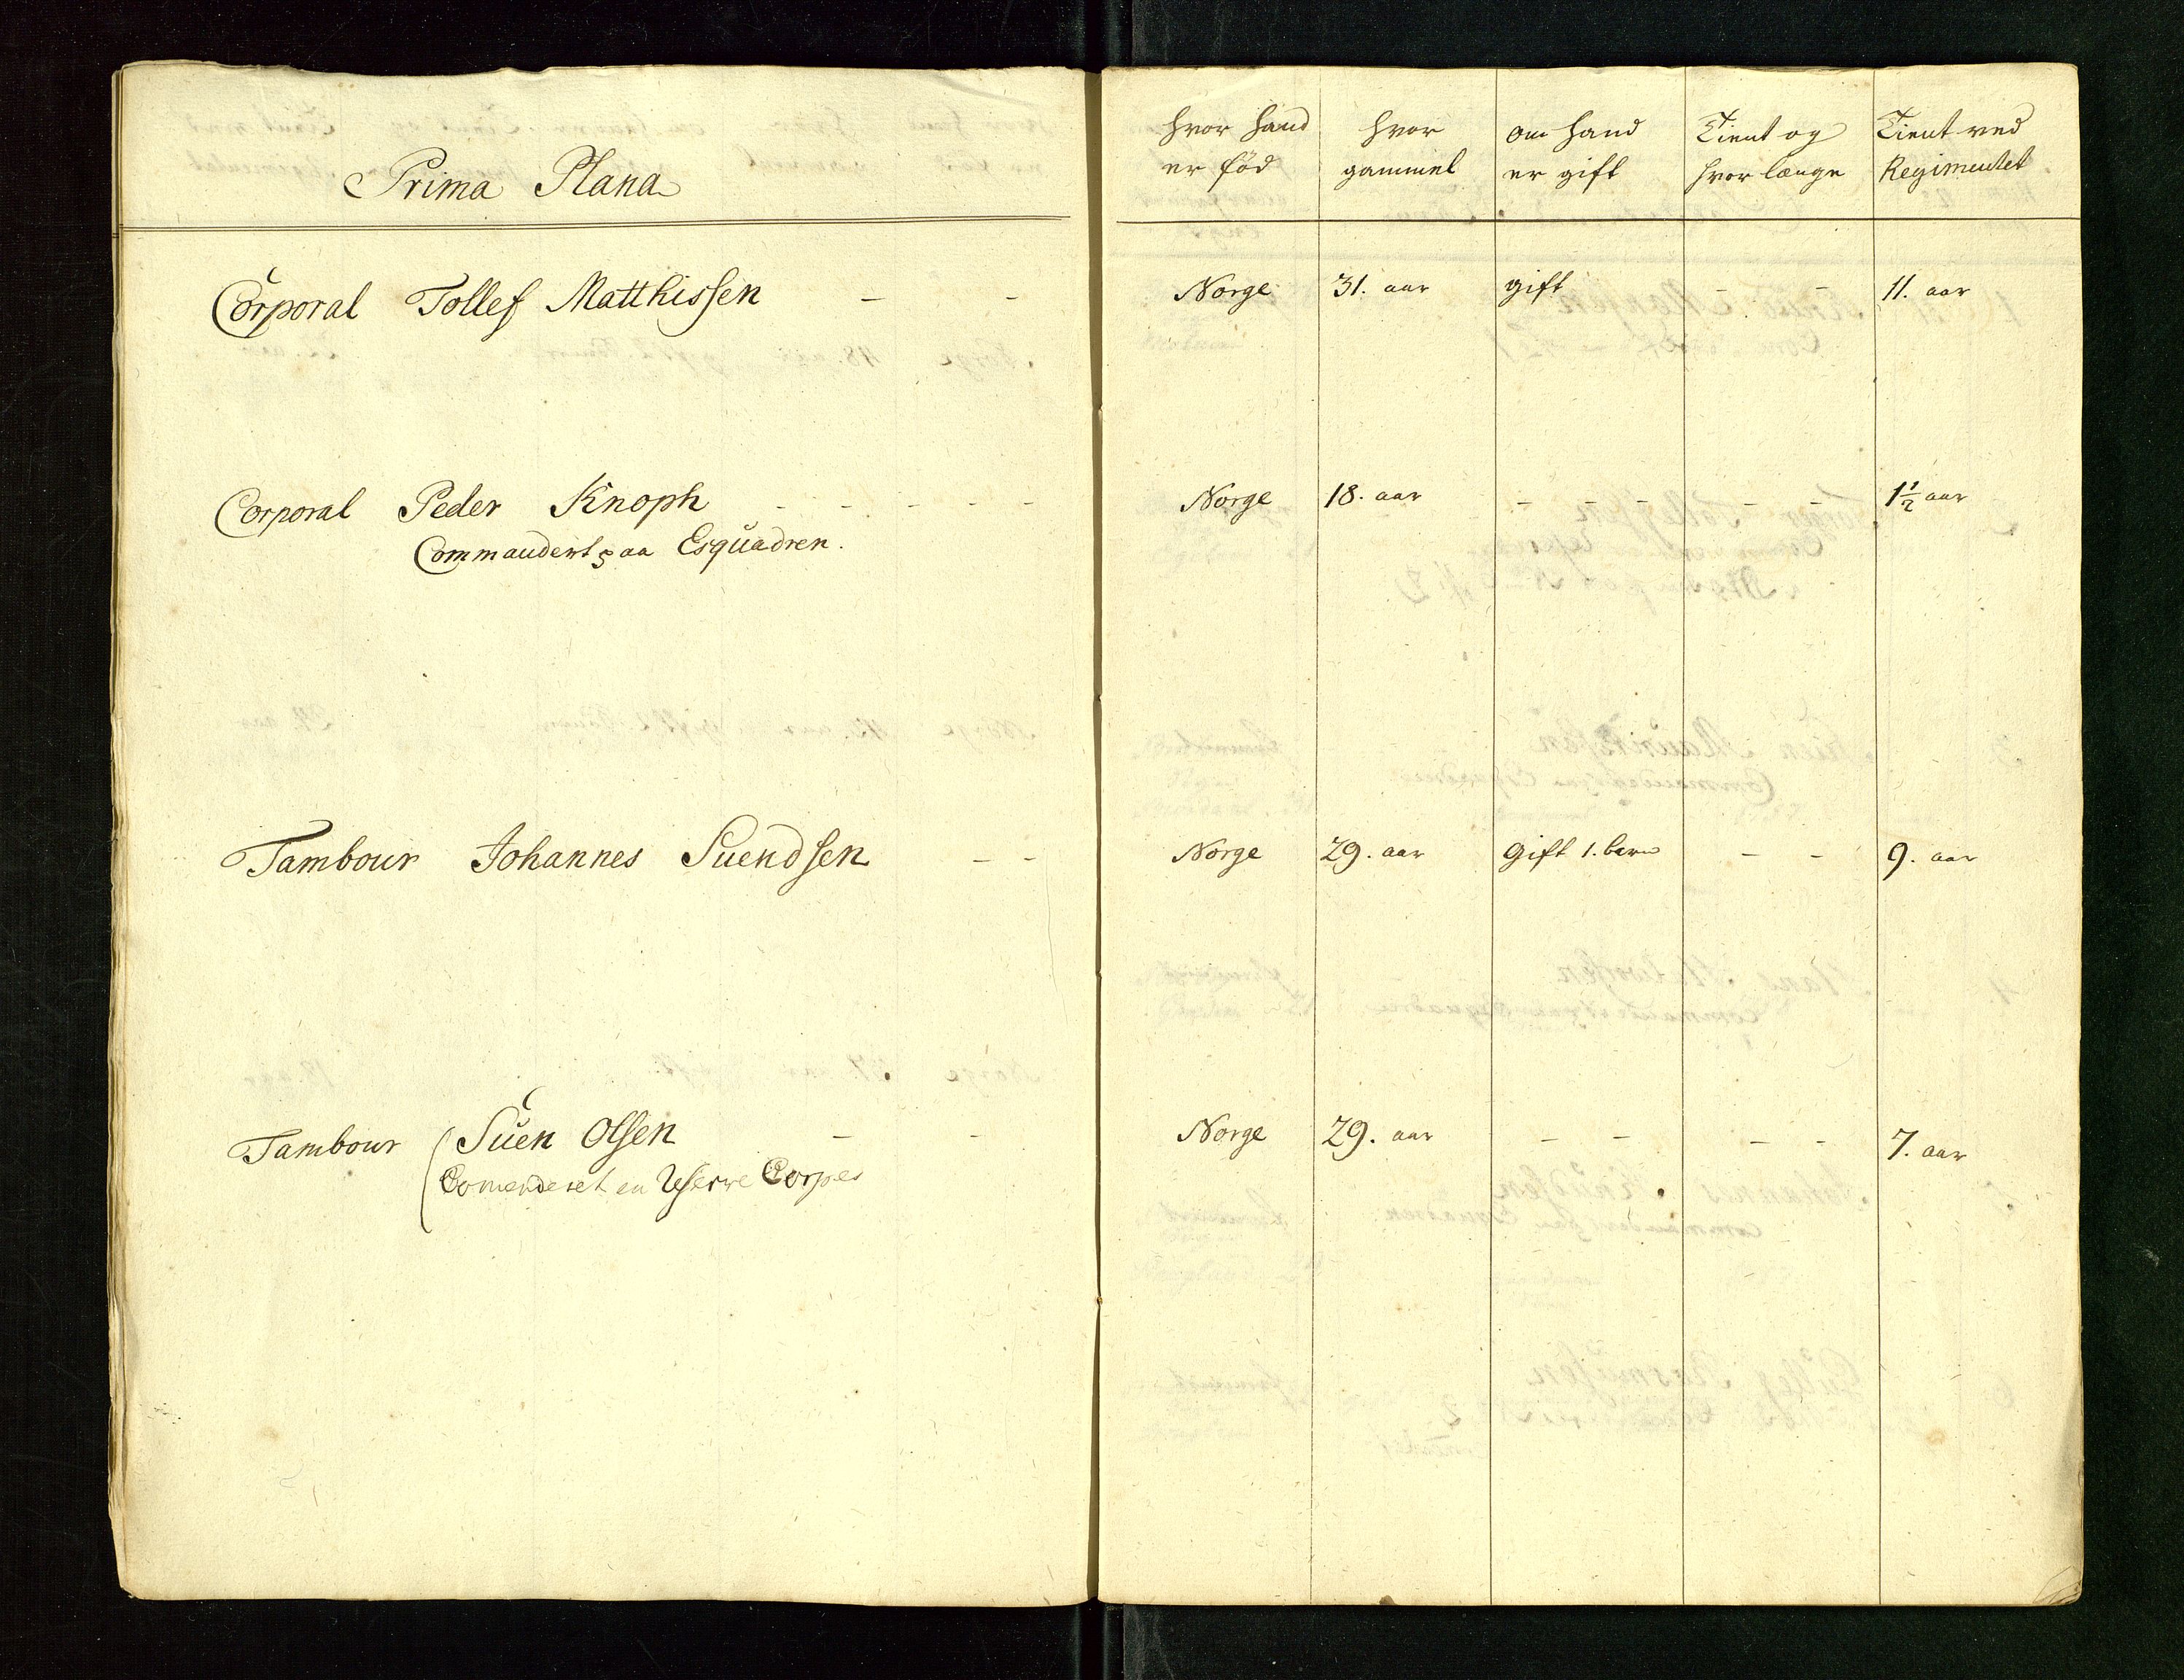 Prima Plana
hvor hand er fød | hvor gammel | om hand er gift | Tient og hvor længe | Tient ved Regimentet
Corporal Tollef Matthissen - - | Norge | 31. aar | gift | - - | 11. aar
Corporal Peder Knoph - - - - - | Norge | 18. aar | - - - | - - | 1 1/2 aar
Commandert paa Esquadren.
Tambour Johannes Suendsen - - | Norge | 29. aar | Gift 1. barn | - - | 9. aar
Tambour Suen Olsen - - | Norge | 29. aar | - - | - - | 7. aar
Comenderet en Reserve Corpes